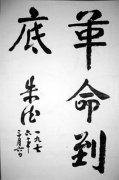 革命到
底
朱德
一九七
六年